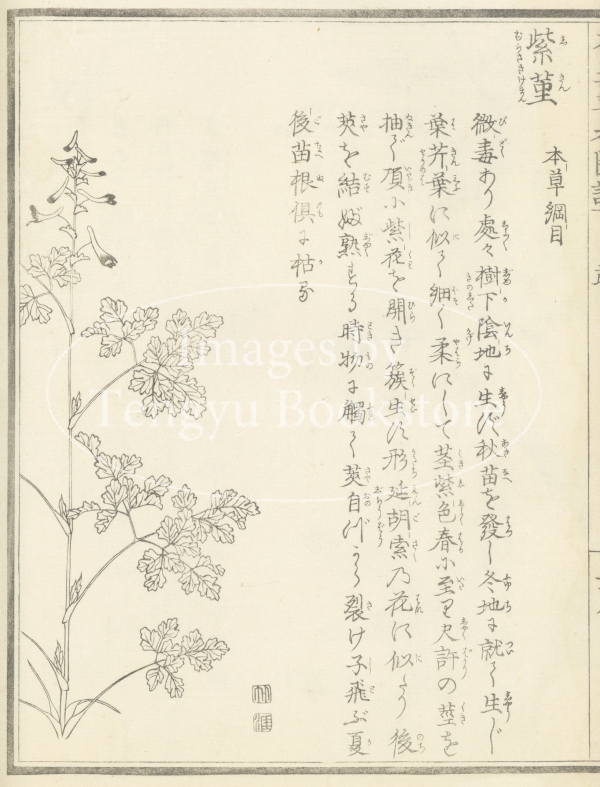 紫菫
しきん
むらさきけまん
本草綱目
微毒あり處々樹下陰地に生ず秋苗を發し冬地に就て生じ
葉芹葉に似て細く柔にして茎紫色春に至り尺許の茎を
抽で頂に紫花を開き簇生す形延胡索乃花に似たり後
莢を結ぶ熟する時物に觸て莢自
裂け子飛ぶ夏
後苗根倶に枯る
Images by
Tengyu Bookstore